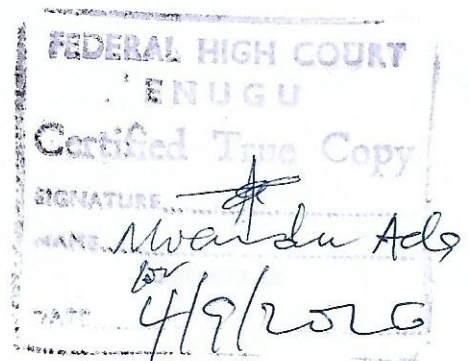 FEDERAL HIGH COURT
ENUGU
Certified True Copy
SIGNATURE
NAME Ada
for
DATE 4/9/2020